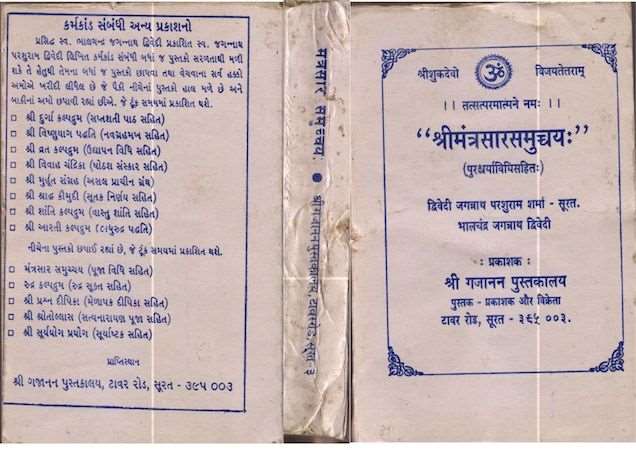 કર્મકાંડ સંબંધી અન્ય પ્રકાશનો
પ્રસિદ્ધ સ્વ. ભાલચન્દ્ર જગન્નાથ દ્વિવેદી પ્રકાશિત સ્વ. જગન્નાથ
પરશુરામ દ્વિવેદી લિખિત કર્મકાંડ સંબંધી બધાં જ પુસ્તકો સરળતાથી મળી
શકે તે હેતુથી તેમના બધાં જ પુસ્તકો છાપવા તથા વેચવાના સર્વ હક્કો
અમોએ ખરીદી લીધેલ છે જે પૈકી નીચેનાં પુસ્તકો હાલ મળે છે અને
બાકીનાં અમો છપાવી રહ્યાં છીએ. જે ટૂંક સમયમાં પ્રકાશિત થશે.
શ્રી દુર્ગા કલ્પદ્રુમ (સપ્તશતી પાઠ સહિત)
શ્રી વિષ્ણુયાગ પદ્ધતિ (નવગ્રહમખ સહિત)
શ્રી વ્રત કલ્પદ્રુમ (ઉદ્યાપન વિધિ સહિત)
શ્રી વિવાહ ચંદ્રિકા (ષોડશ સંસ્કાર સહિત)
શ્રી મુર્હૂત સંગ્રહ (અસલ પ્રાચીન ગ્રંથ)
શ્રી શ્રાદ્ધ કૌમુદી (સૂતક નિર્ણય સહિત)
શ્રી શાંતિ કલ્પદ્રુમ (વાસ્તુ શાંતિ સહિત)
શ્રી આરતી કલ્પદ્રુમ (લઘુરુદ્ર પદ્ધતિ)
નીચેના પુસ્તકો છપાઈ રહ્યાં છે, જે ટૂંક સમયમાં પ્રકાશિત થશે.
મંત્રસાર સમુચ્ચય (પૂજા વિધિ સહિત)
રુદ્ર કલ્પદ્રુમ (રુદ્ર સૂક્ત સહિત)
શ્રી પ્રશ્ન દીપિકા (મેળાપક દીપિકા સહિત)
શ્રી શ્રોતોલ્લાસ (સત્યનારાયણ પૂજા સહિત)
શ્રી સૂર્યયોગ પ્રયોગ (સૂર્યાષ્ટક સહિત)
પ્રાપ્તિસ્થાન
શ્રી ગજાનન પુસ્તકાલય, ટાવર રોડ, સૂરત - ૩૯૫ ૦૦૩
मंत्रसार समुच्चय: ● श्री गजानन पुस्तकालय, टावररोड, सूरत-३
श्रीशुकदेवो ॐ विजयतेतराम्
।। तत्सत्परमात्मने नमः ।।
“श्रीमंत्रसारसमुच्चयः”
(पुरश्चर्याविधिसहितः)
द्विवेदी जगन्नाथ परशुराम शर्मा - सूरत.
भालचंद्र जगन्नाथ द्विवेदी
: प्रकाशक :
श्री गजानन पुस्तकालय
पुस्तक - प्रकाशक और विक्रेता
टावर रोड, सूरत - ३९५ ००३.